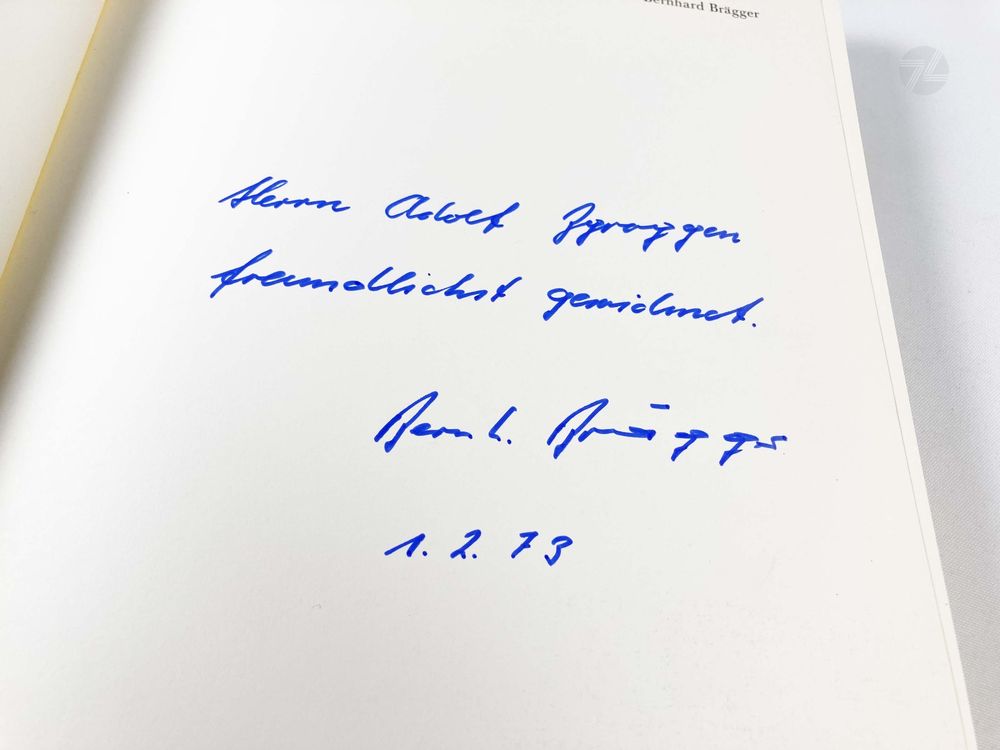 Bernhard Brägger
Herrn Adolf Zgraggen
freundlichst gewidmet.
Bernh. Brägger
1. 2. 73